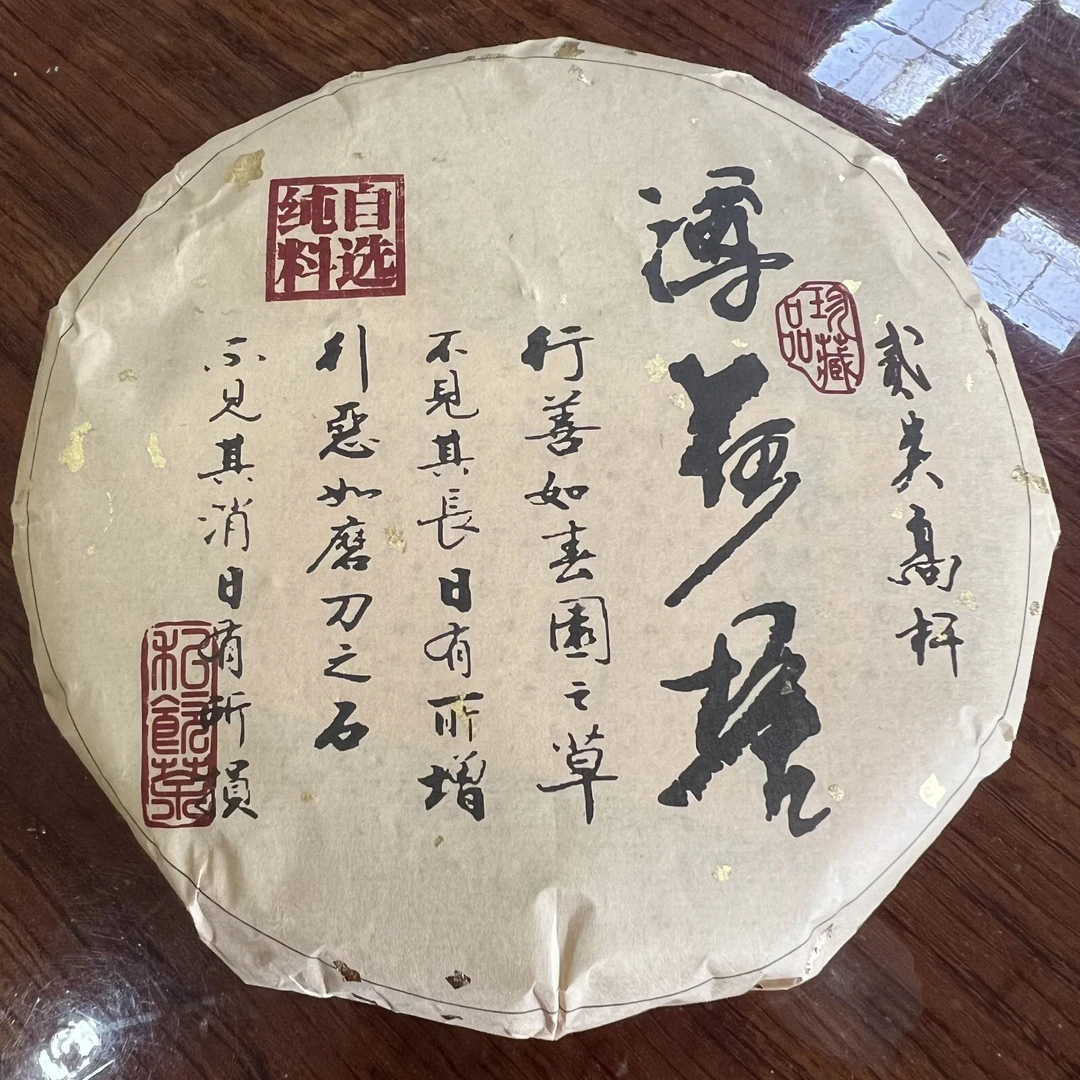 貳类高杆
珍藏品
薄荷塘
自选纯料
行善如春園之草
不見其長日有所增
行惡如磨刀之石
不見其消日有所損